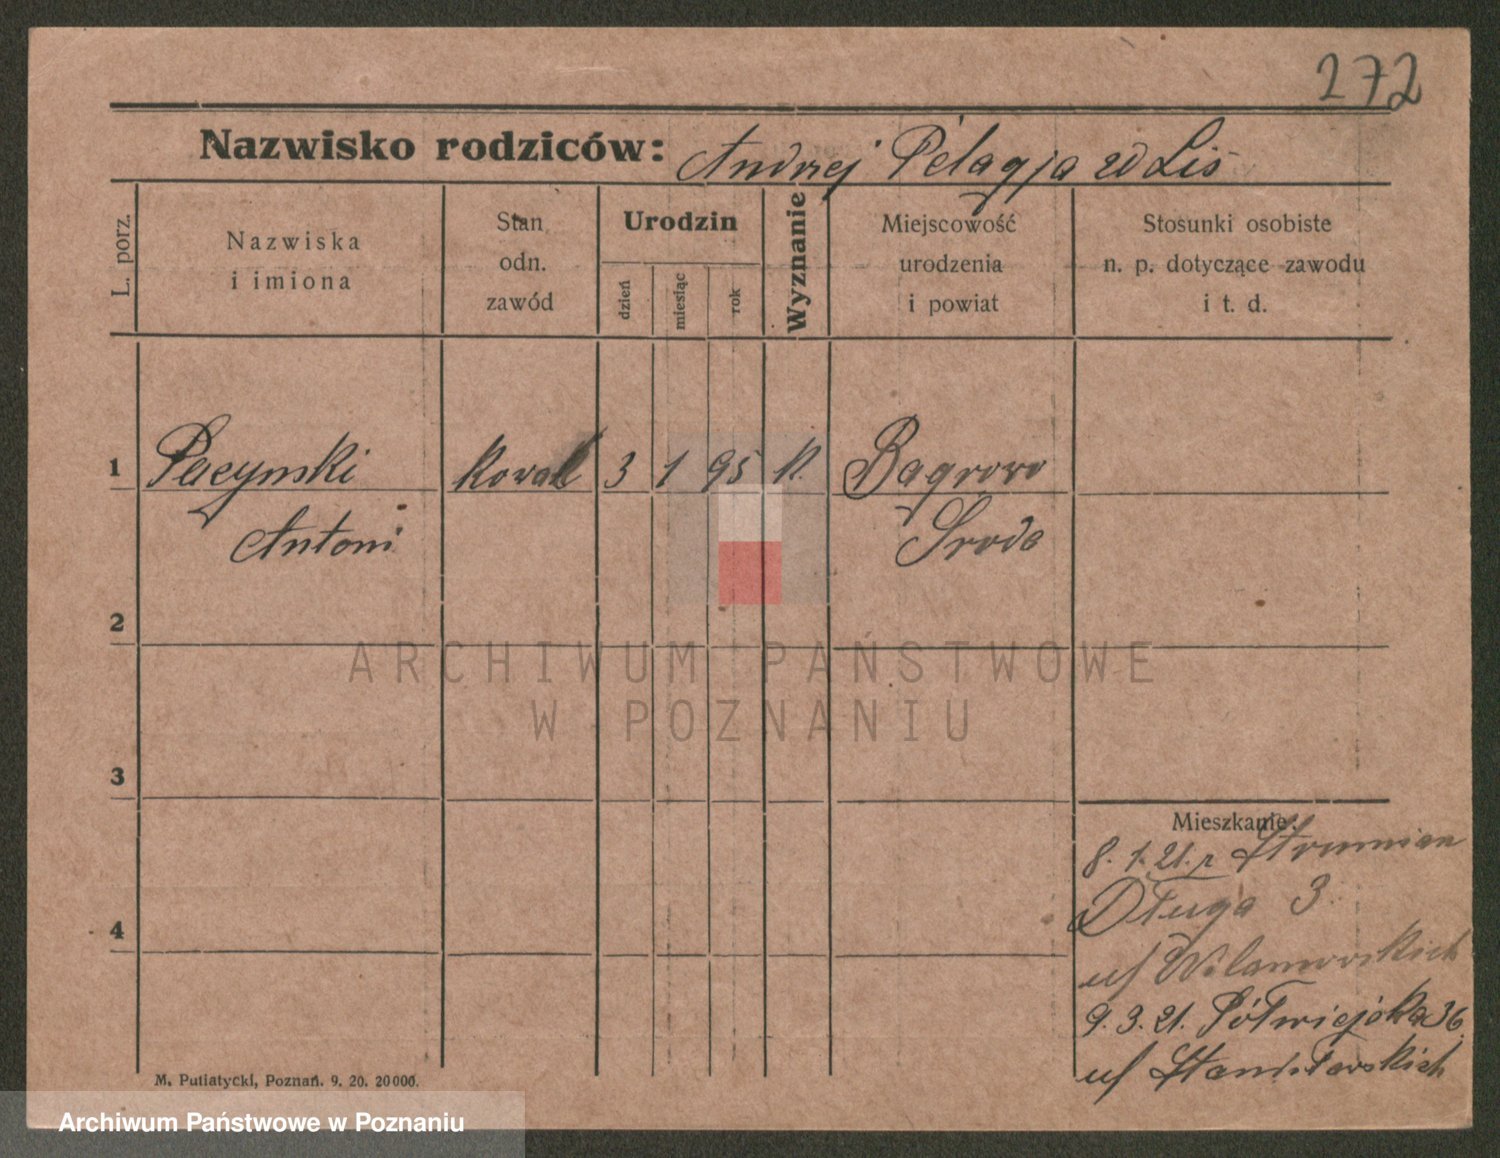 272
Nazwisko rodziców: Andrzej Pelagja zd Liś
L. porz.
Nazwiska
i imiona
Stan
odn.
zawód
Urodzin
dzień
miesiąc
rok
Wyznanie
Miejscowość
urodzenia
i powiat
Stosunki osobiste
n. p. dotyczące zawodu
i t. d.
1 Pacynski kowal 3 1 95 k. Bagrowo
Antoni Sroda
2
3
4
Mieszkanie:
8. 1. 21. z Strumian
Długa 3.
u/ Wilamowskich
9. 3. 21. Półwiejska 36
u/ Stanisławskich
M. Putiatycki, Poznań. 9. 20. 20000.
ARCHIWUM PAŃSTWOWE
W POZNANIU
Archiwum Państwowe w Poznaniu